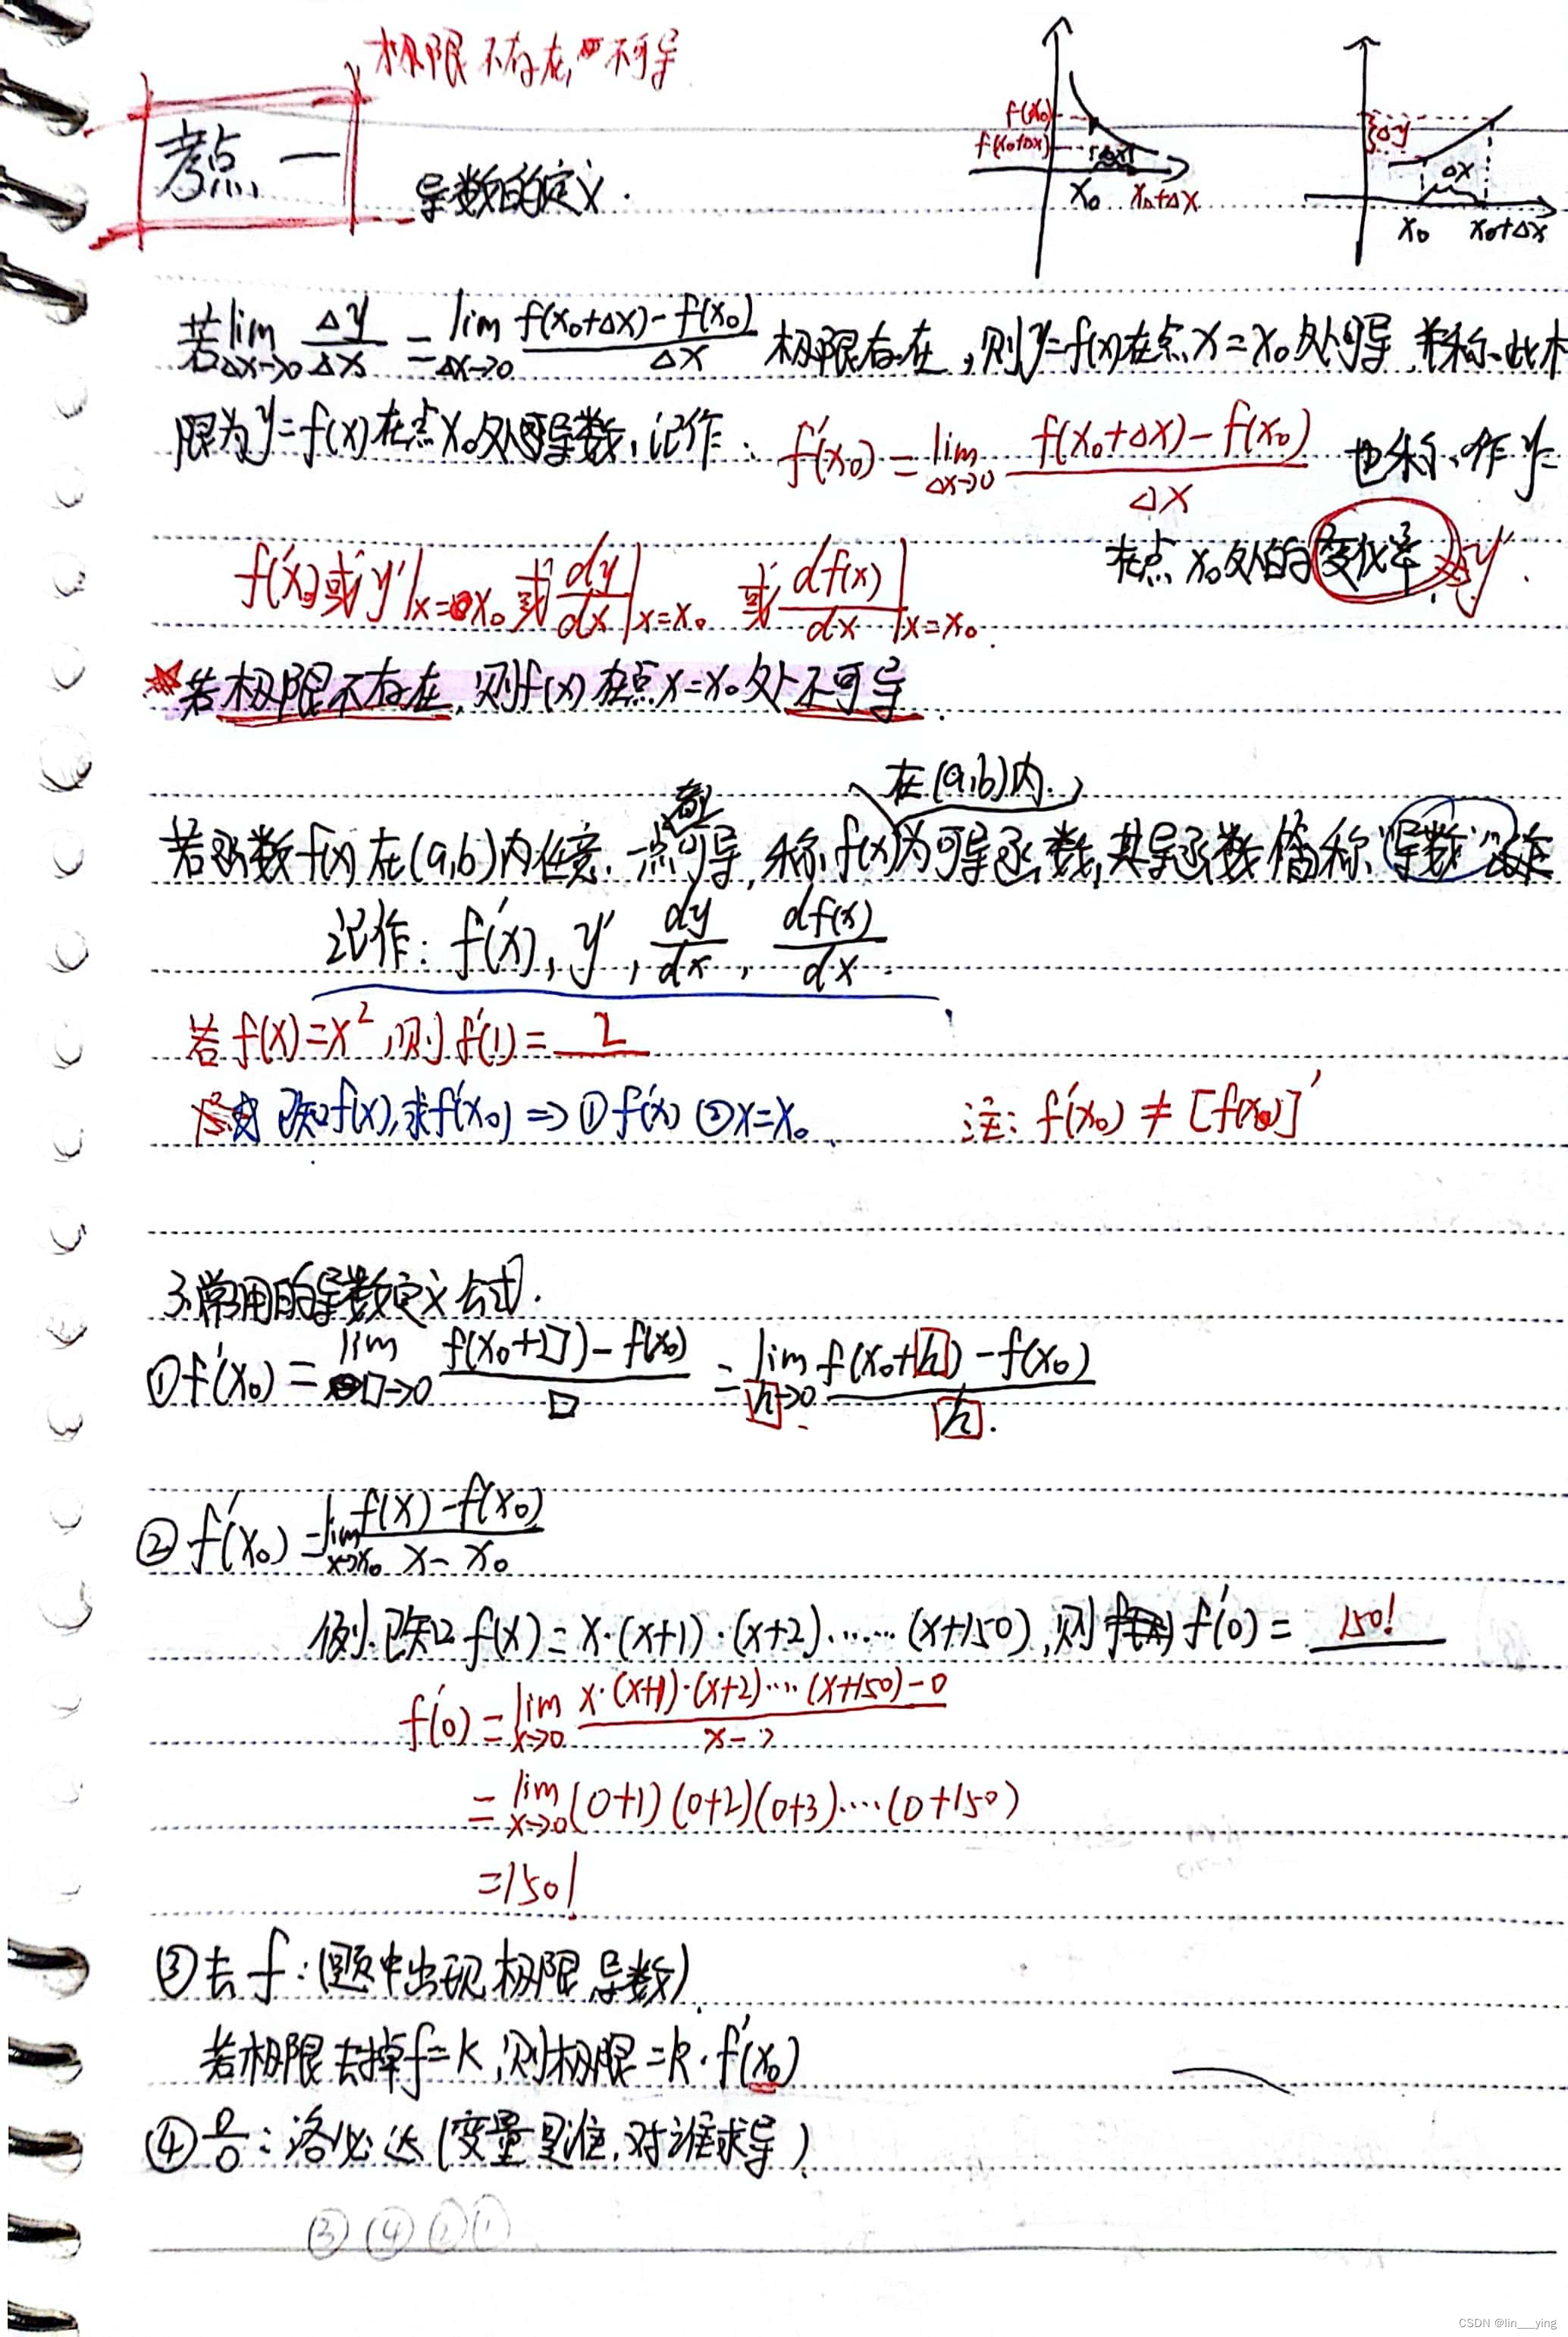 极限不存在,不可导
考点一
导数的定义.
f(x₀)
f(x₀+Δx)
Δx
x₀ x₀+Δx
Δy
Δx
x₀ x₀+Δx
若lim_{Δx→0} Δy/Δx = lim_{Δx→0} (f(x₀+Δx)-f(x₀))/Δx 极限存在,则y=f(x)在点x=x₀处可导,并称此极
限为y=f(x)在点x₀处可导数,记作: f'(x₀)=lim_{Δx→0} (f(x₀+Δx)-f(x₀))/Δx 也称作y=
在点x₀处的变化率 y'.
f'(x₀)或y'|x=x₀ 或 dy/dx|x=x₀ 或 df(x)/dx|x=x₀.
若极限不存在,则f(x)在点x=x₀处不可导.
在(a,b)内
若函数f(x)在(a,b)内任意一点可导,称f(x)为可导函数,其导函数简称"导数"
记作: f'(x), y', dy/dx, df(x)/dx.
若f(x)=x²,则f'(1)=2
已知f(x),求f'(x₀)⇒①f'(x) ②x=x₀. 注: f'(x₀)≠[f(x₀)]'
3.常用的导数定义公式.
①f'(x₀)=lim_{□→0} (f(x₀+□)-f(x₀))/□ = lim_{h→0} (f(x₀+h)-f(x₀))/h.
②f'(x₀)=lim_{x→x₀} (f(x)-f(x₀))/(x-x₀)
例.已知f(x)=x·(x+1)·(x+2)······(x+150),则f'(0)=150!
f'(0)=lim_{x→0} (x·(x+1)·(x+2)····(x+150)-0)/(x-0)
=lim_{x→0}(0+1)(0+2)(0+3)····(0+150)
=150!
③去f:(题中出现极限导数).
若极限去掉f=k,则极限=k·f'(x₀)
④0/0:洛必达(变量是谁,对谁求导).
③④②①
CSDN @lin___ying